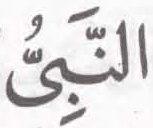 النَّبِيُّ